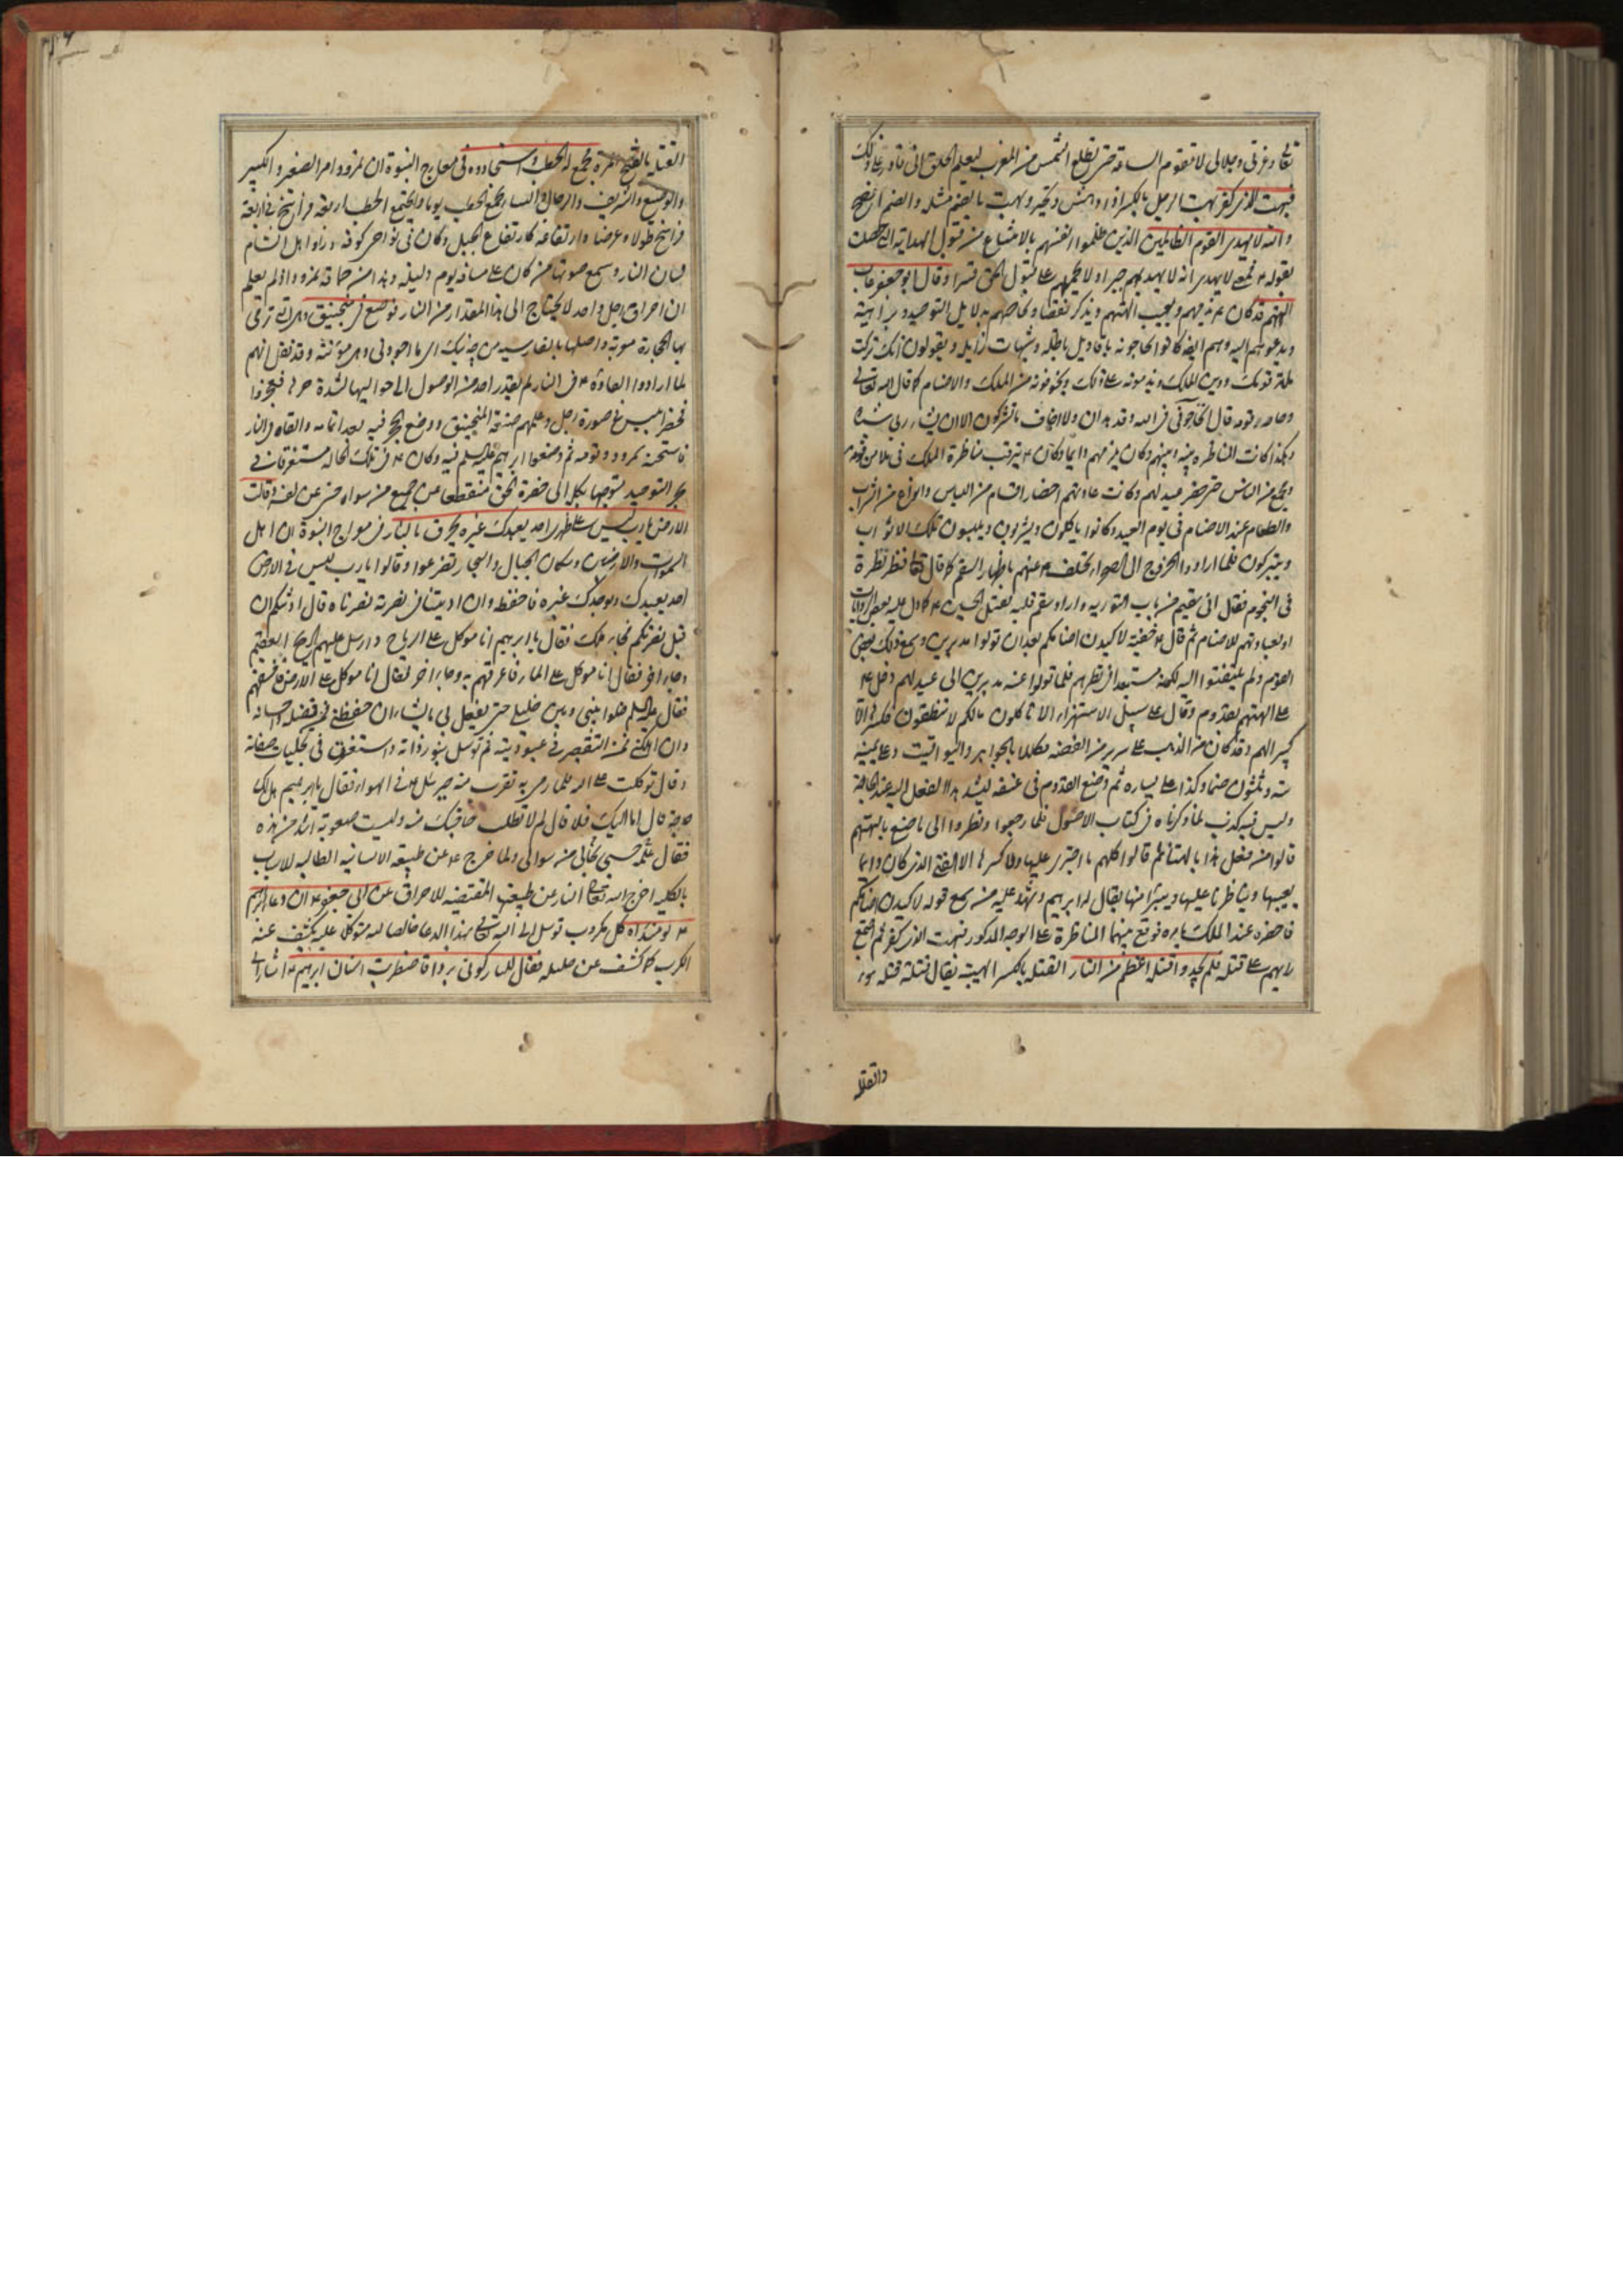 تعالى وعزتى وجلالى لا تقوم الساعة حتى تطلع الشمس من المغرب ليعلم الخلق انى قادر على ذلك
فبهت الذى كفر بهت الرجل بالكسر اذا دهش وتحير وبهت بالضم مثله
والله لا يهدى القوم الظالمين الذين ظلموا انفسهم بالامتناع من قبول الهداية
بقوله لا يهدى انه لا يهديهم جبرا ولا يحملهم على قبول الحق قسرا وقال ابو جعفر عاب
الهتهم قد كان يذمهم ويعيب الهتهم ويذكر نقصا بدلايل التوحيد
ويدعوهم اليه وهم ايضا كانوا يحاجونه باقاويل باطلة وشبهات زايلة ويقولون انك تركت
ملة قومك ودين الملك ويذمونه على ذلك ويخوفونه من الملك والاصنام كما قال الله تعالى
وحاجه قومه قال اتحاجونى فى الله وقد هدان ولا اخاف ما تشركون الا ان يشاء ربى شيئا
وهكذا كانت المناظرة بينه وبينهم وكان يذمهم دايما وكان يترقب مناظرة الملك فى ملا من قومه
وجمع من الناس حتى حضر عيد لهم وكانت عادتهم احضار اقسام من اللباس وانواع من الشراب
والطعام عند الاصنام فى يوم العيد وكانوا ياكلون ويشربون ويلبسون تلك الاثواب
ويتبركون فلما ارادوا الخروج الى الصحراء تخلف عنهم باظهار السقم كما قال تعالى فنظر نظرة
فى النجوم فقال انى سقيم من باب التورية واراد سقم قلبه لقتل الحسين كما دل عليه بعض الروايات
او لعبادتهم للاصنام ثم قال خفية لاكيدن اصنامكم بعد ان تولوا مدبرين وسمع ذلك بعض
القوم ولم يلتفتوا اليه لكونه مستبعدا فى نظرهم فلما تولوا عنه مدبرين الى عيد لهم دخل
على الهتهم بقدوم وقال على سبيل الاستهزاء الا تاكلون ما لكم لا تنطقون فكسرها الا
كبيرا لهم وقد كان من الذهب على سرير من الفضة مكللا بالجواهر واليواقيت وعلى يمينه
ستة وثلثون صنما وكذا على يساره ثم وضع القدوم فى عنقه
وليس فيه كذب لما ذكرناه فى كتاب الاصول فلما رجعوا ونظروا الى ما صنع بالهتهم
قالوا من فعل هذا بالهتنا ثم قالوا كلهم ما اجترى عليها ولا كسرها الا الفتى الذى كان دايما
يعيبها ويناظرنا عليها ويتبرا منها يقال له ابرهيم وشهد عليه من سمع قوله لاكيدن اصنامكم
فاحضره عند الملك بامره فوقع بينهما المناظرة على الوجه المذكور فبهت الذى كفر ثم اجتمع
رايهم على قتله فلم يجدوا قتلة اعظم من النار القتلة بالكسر الهيئة يقال قتله قتلة سوء
والقتلة
القتلة بالفتح المرة فجمع له الحطب واستجادوه فى معارج النبوة ان نمرود امر الصغير والكبير
والوضيع والشريف والرجال والنساء بجمع الحطب يوما واجتمع الحطب اربعة فراسخ فى اربعة
فراسخ طولا وعرضا وارتفاعه كارتفاع الجبل وكان فى نواحى كوفة وراوا اهل الشام
لسان النار وسمع صوتها من كان على مسافة يوم وليلة وهذا من حماقة نمرود اذ لم يعلم
ان احراق رجل واحد لا يحتاج الى هذا المقدار من النار فوضع فى منجنيق وهى التى ترمى
بها الحجارة معربة واصلها بالفارسية من چه نيك اى ما اجودنى وهى مؤنثة وقد نقل انهم
لما ارادوا القاءه فى النار لم يقدر احد من الوصول الى حواليها لشدة حرها فعجزوا
فحضر ابليس على صورة رجل وعلمهم صنعة المنجنيق ووضع الحجر فيه بعد اتمامه والقاه فى النار
فاستحسنه نمرود وقومه ثم وضعوا ابرهيم عليه السلم فيه وكان فى تلك الحالة مستغرقا فى
بحر التوحيد متوجها بكله الى حضرة الحق منقطعا عن جميع من سواه حتى عن نفسه قالت
الارض يا رب ليس على ظهرى احد يعبدك غيره يحرق بالنار فى معارج النبوة ان اهل
السموات والارضين وسكان الجبال والبحار تضرعوا وقالوا يا رب ليس فى الارض
احد يعبدك ويوحدك غيره فاحفظه وان اذنتنا فى نصرته نصرناه قال اذنتكم ان
قبل نصرتكم فجاءه ملك فقال يا ابرهيم انا موكل على الرياح وارسل عليهم الريح العقيم
وجاء اخر فقال انا موكل على الماء فاغرقهم به وجاء اخر فقال انا موكل على الارض فاخسفهم
فقال عليه السلم خلوا بينى وبين خليلى حتى يفعل بى ما يشاء ان حفظنى فمن فضله واحسانه
وان اهلكنى فمن التقصير فى عبوديته ثم توسل بنور ذاته واستغرق فى تجليات صفاته
وقال توكلت على الله فلما رمى به تقرب منه جبرئيل فى الهواء فقال يا ابرهيم هل لك
حاجة قال اما اليك فلا قال لم لا تطلب وليست صعوبة اشد من هذه
فقال علمه حسبى بحالى من سوالى ولما خرج عن طبيعته الانسانية الطالبة للاسباب
بالكلية اخرج الله تعالى النار عن طبيعتها المقتضية للاحراق عن ابى جعفر ان دعاء ابرهيم
كل مكروب توسل الى الله تعالى بهذا الدعاء خالصا لله متوكلا عليه يكشف عنه
الكرب كما كشف عن خليله فقال للنار كونى بردا فاضطربت اسنان ابرهيم